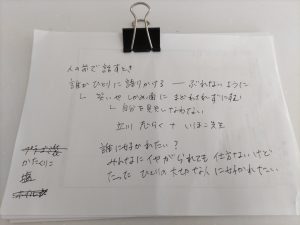 人の前で話すとき
誰かひとりに語りかける ― ぶれないように
└ 笑いや しかめ面に まどわされずに
└ 自分を見失わない
立川 + いほこ先生
誰に好かれたい?
みんなにイヤがられても仕方ないけど
たった ひとりの大切な人に好かれたい
かたくりこ
塩